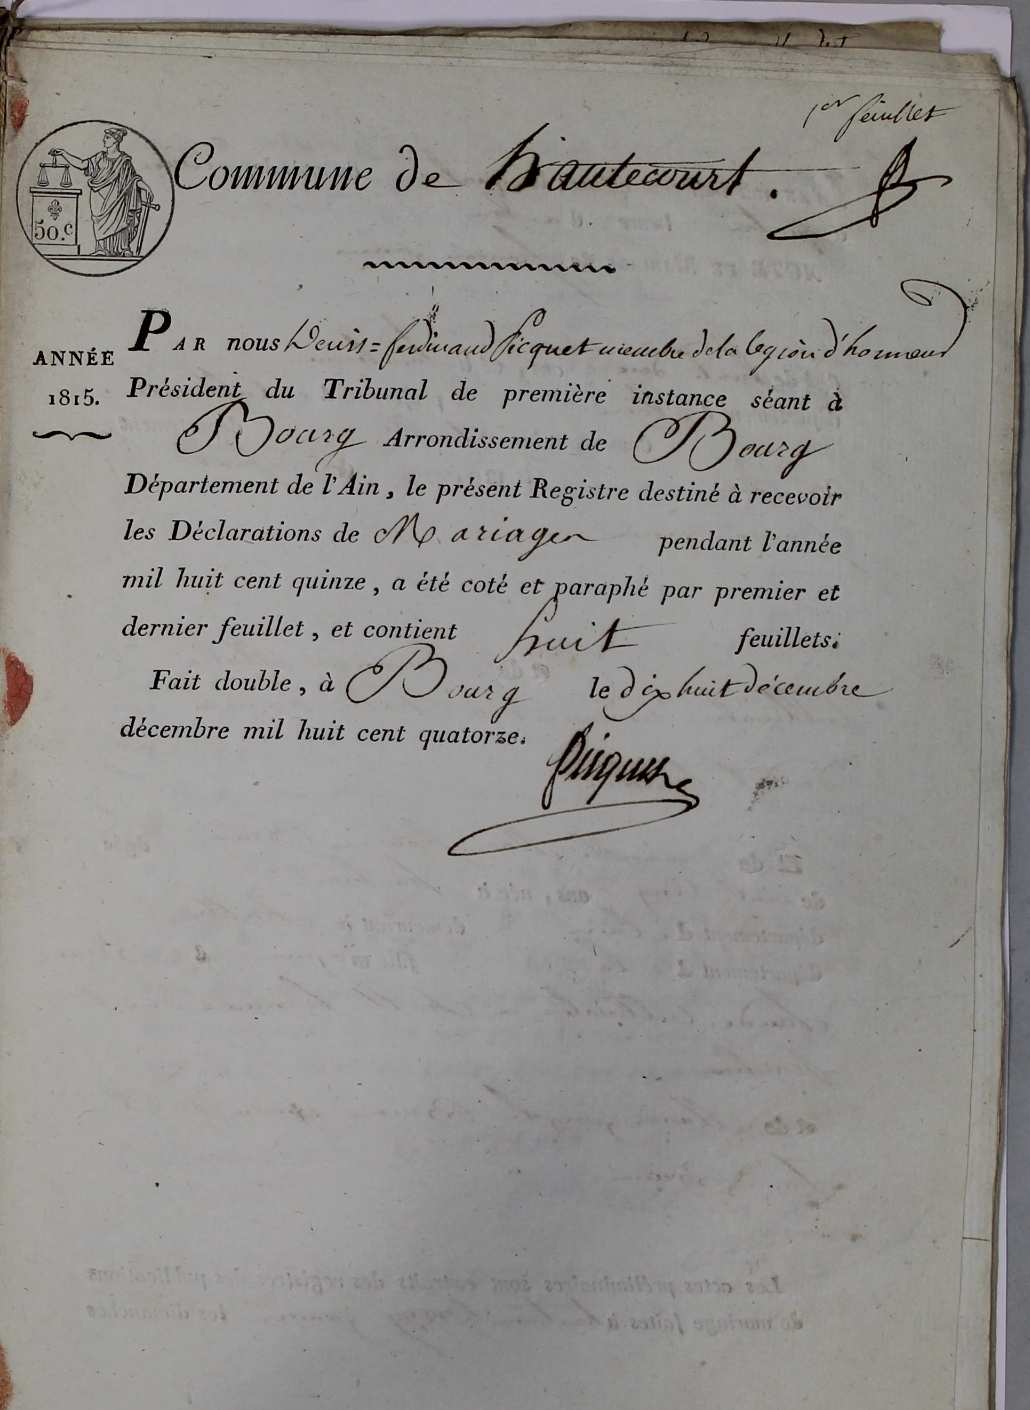 1er feuillet
50.c
Commune de hautecourt.
ANNÉE
1815.
PAR nous Denis=ferdinand Picquet membre de la legion d'honneur
Président du Tribunal de première instance séant à
Bourg Arrondissement de Bourg
Département de l'Ain, le présent Registre destiné à recevoir
les Déclarations de Mariages pendant l'année
mil huit cent quinze, a été coté et paraphé par premier et
dernier feuillet, et contient huit feuillets.
Fait double, à Bourg le dix huit décembre
décembre mil huit cent quatorze.
Picquet